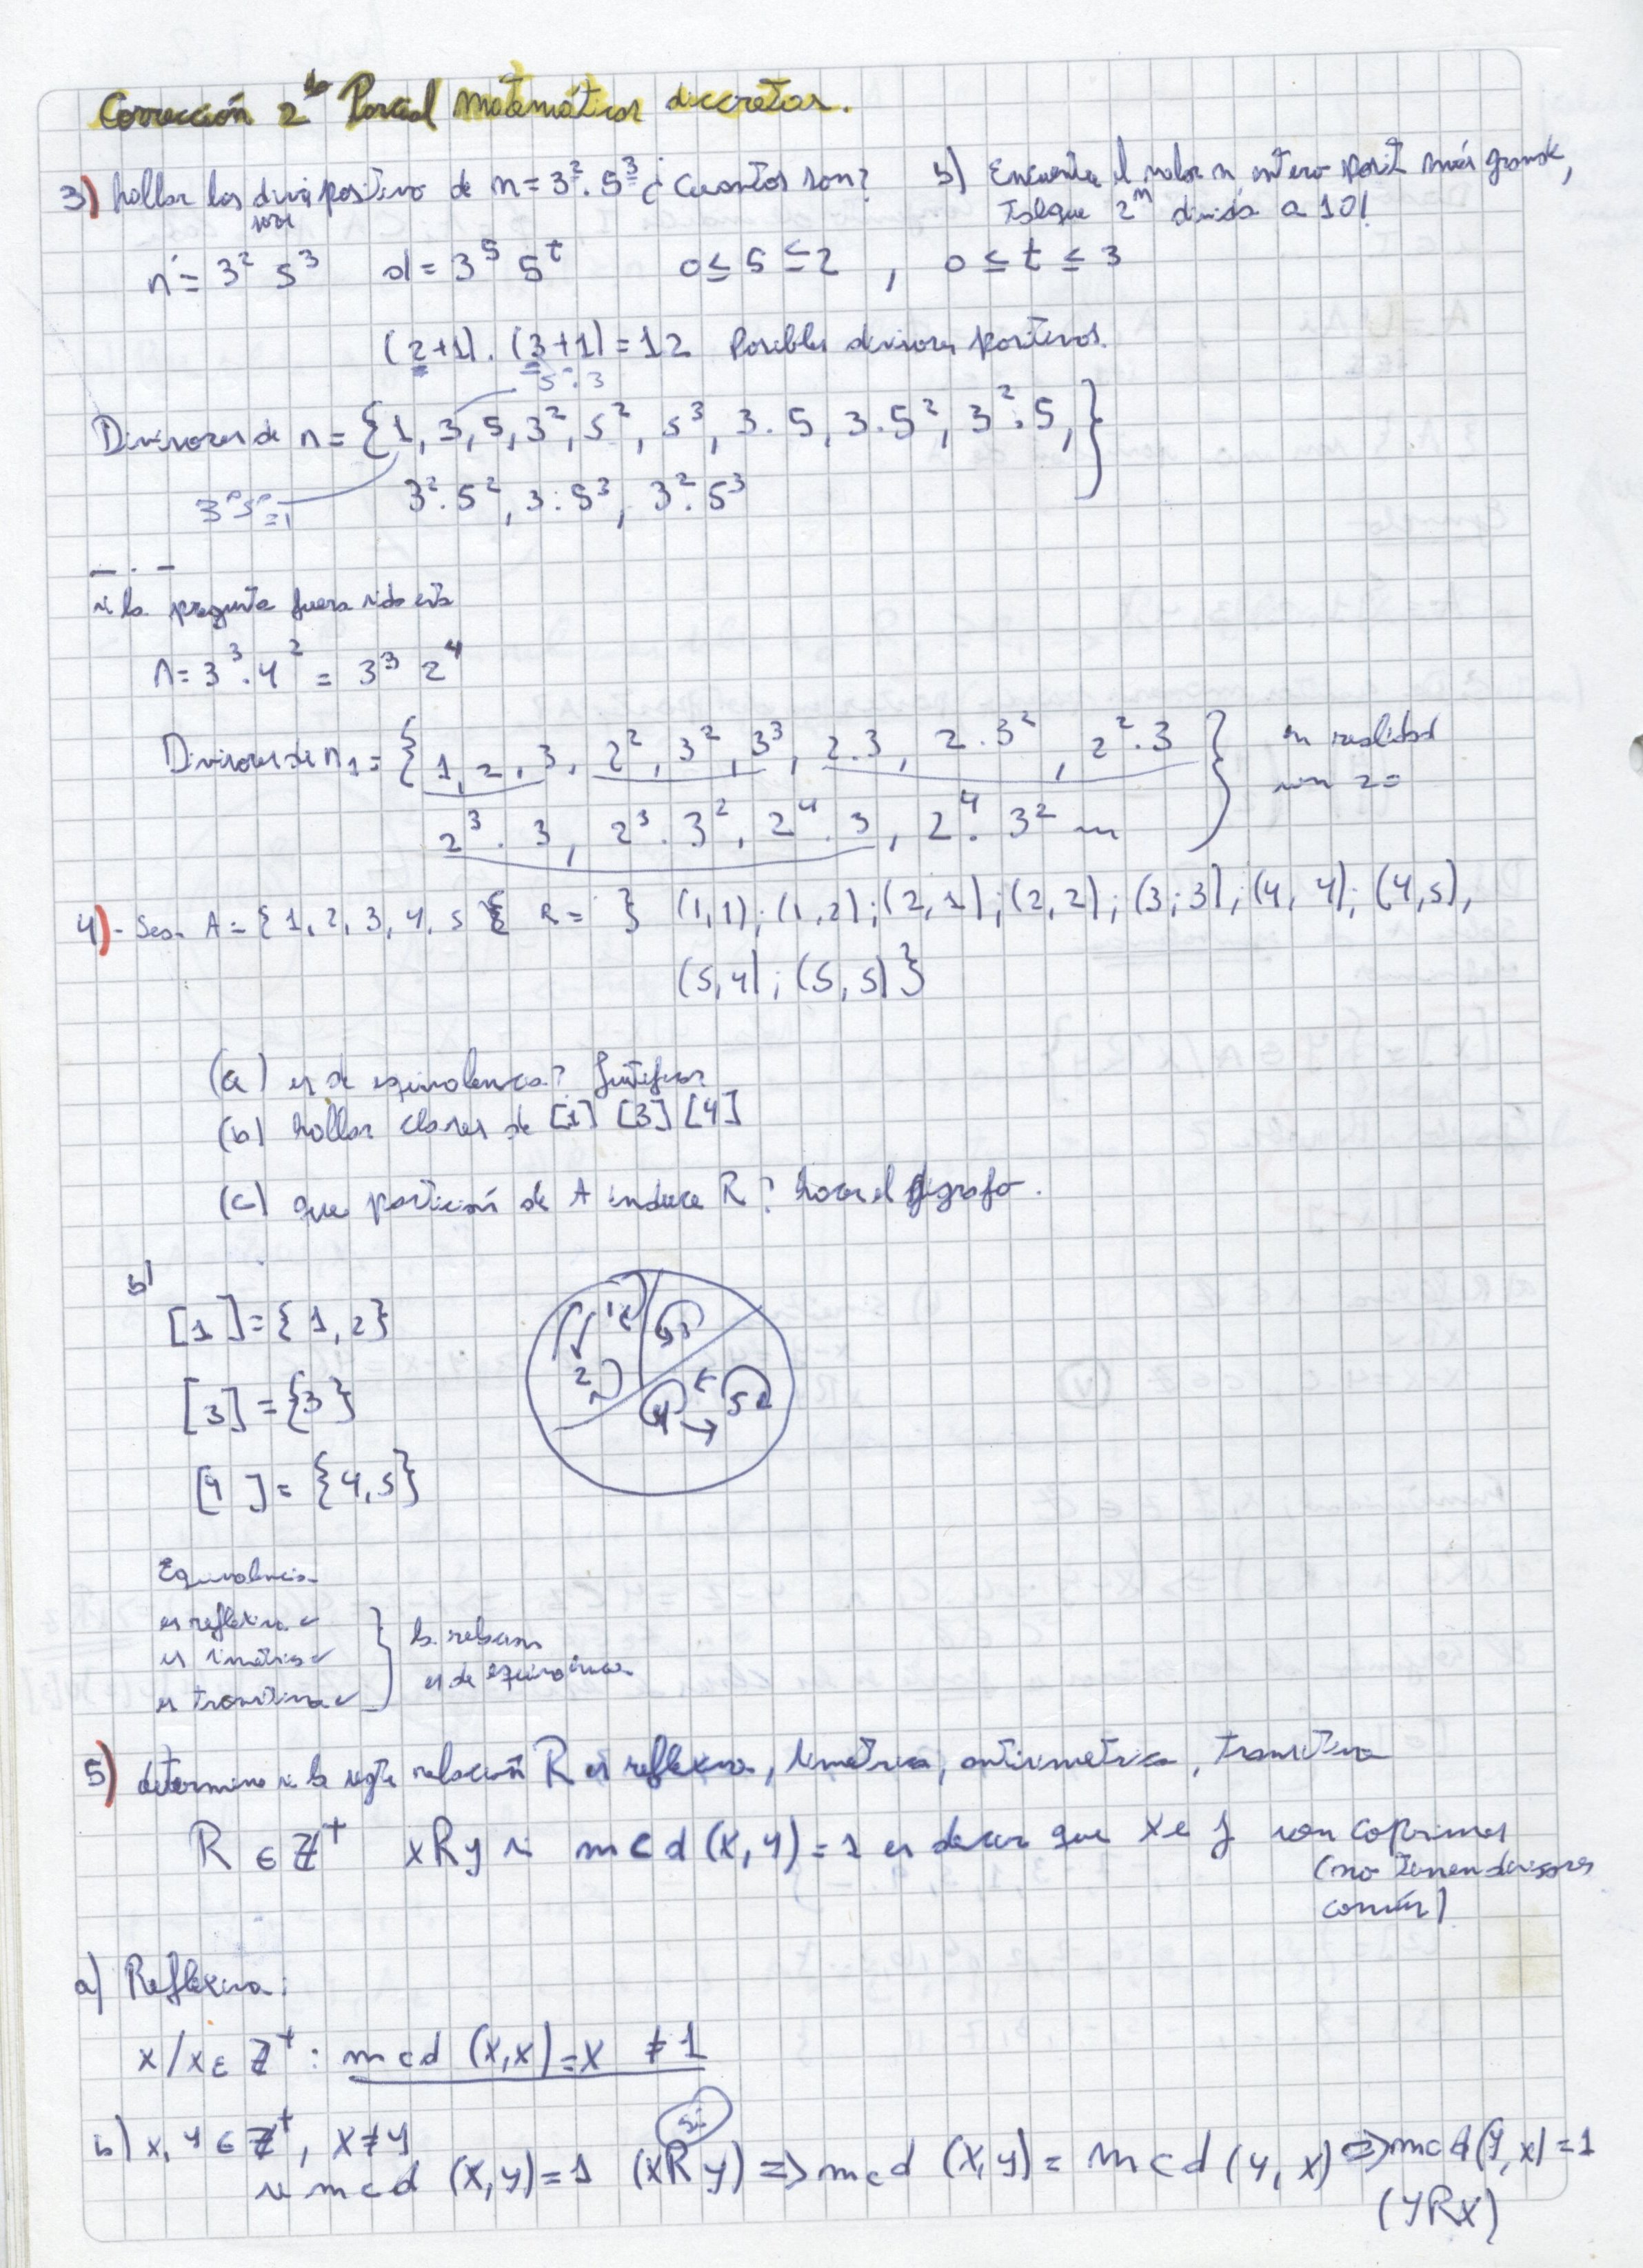 Corrección 2do Parcial Matemáticas discretas.
3) hallar los divisores positivo de n = 3². 5³ ¿cuantos son?
b) Encuentra el valor n entero posit más grande,
tal que 2ⁿ divida a 10!
n = 3² 5³ d = 3ˢ 5ᵗ 0 ≤ s ≤ 2 , 0 ≤ t ≤ 3
(2+1) . (3+1) = 12 Posibles divisores positivos.
5º.3
Divisores de n = {1, 3, 5, 3², 5², 5³, 3.5, 3.5², 3².5,}
3º5º=1
3².5², 3.5³, 3².5³
si la pregunta fuera sido esta
n = 3³.4² = 3³ 2⁴
Divisores de n₁ = {1, 2, 3, 2², 3², 3³, 2.3, 2.3², 2².3
2³.3, 2³.3², 2⁴.3, 2⁴.3² }
en realidad
son 20
4)- Sea A = {1, 2, 3, 4, 5 } R = } (1,1); (1,2); (2,1); (2,2); (3;3); (4,4); (4,5),
(5,4); (5,5)}
(a) es de equivalencia? Justificar
(b) hallar clases de [1] [3] [4]
(c) que partición de A induce R? hacer el digrafo.
b)
[1] = {1, 2}
[3] = {3}
[4] = {4,5}
1 2 3 4 5
Equivalencia
es reflexiva ✓
es simétrica ✓
es transitiva ✓
la relacion
es de equivalencia
5) determine si la sgte relación R es reflexiva, simétrica, antisimetrica, transitiva
R ∈ Z⁺ xRy si mcd (x,y) = 1 es decir que x e y son coprimos
(no tienen divisores
común)
a) Reflexiva:
x/x∈ Z⁺ : mcd (x,x) = x ≠ 1
b) x, y ∈ Z⁺, x≠y
Si
si mcd (x,y)=1 (xRy) => mcd (x,y) = mcd (y,x) => mcd (y,x) = 1
(yRx)